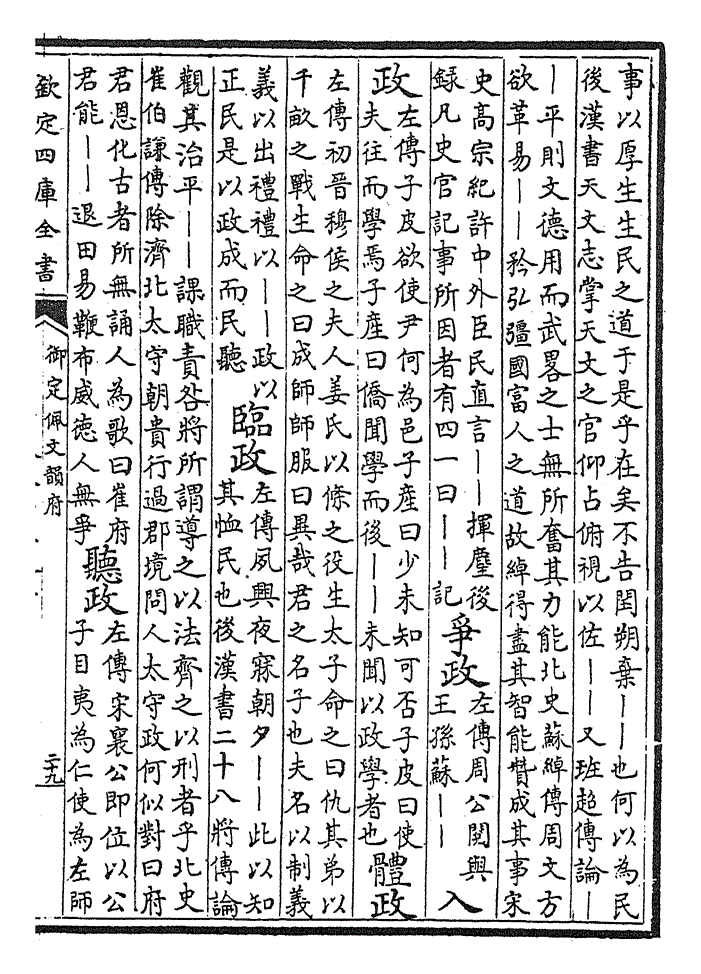 事以厚生生民之道于是乎在矣不告閏朔棄——也何以為民
後漢書天文志掌天文之官仰占俯視以佐——又班超傳論—
—平則文德用而武畧之士無所奮其力能北史蘇綽傳周文方
欲革易——矜弘彊國富人之道故綽得盡其智能贊成其事宋
史高宗紀許中外臣民直言——揮麈後
録凡史官記事所因者有四一曰——記
爭政
左傳周公閱與
王孫蘇——
入
政
左傳子皮欲使尹何為邑子産曰少未知可否子皮曰使
夫往而學焉子産曰僑聞學而後——未聞以政學者也
體政
左傳初晉穆侯之夫人姜氏以條之役生太子命之曰仇其弟以
千畝之戰生命之曰成師師服曰異哉君之名子也夫名以制義
義以出禮禮以——政以
正民是以政成而民聽
臨政
左傳夙興夜寐朝夕——此以知
其恤民也後漢書二十八將傳論
觀其治平——課職責咎將所謂導之以法齊之以刑者乎北史
崔伯謙傳除濟北太守朝貴行過郡境問人太守政何似對曰府
君恩化古者所無誦人為歌曰崔府
君能——退田易鞭布威德人無爭
聽政
左傳宋襄公即位以公
子目夷為仁使為左師
欽定四庫全書
御定佩文韻府
二十九